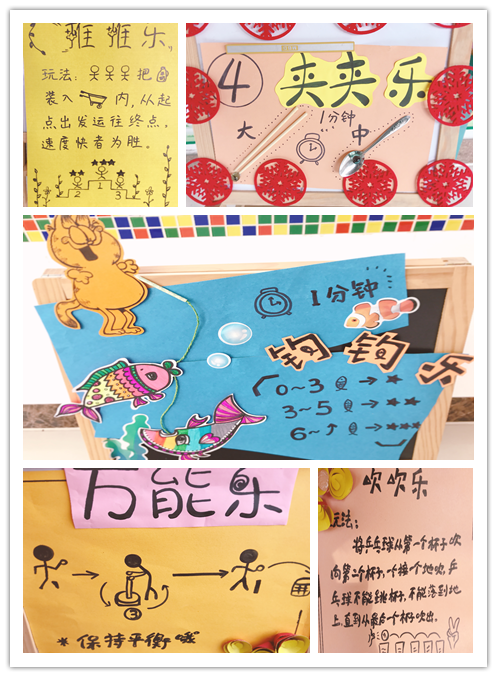 "推推乐"
玩法: 把
装入 内,从起
点出发运往终点。
速度快者为胜。
2 1 3
④ 夹夹乐
1分钟
大 中
1分钟
钩钩乐
0~3 → ★
3~5 → ★★
6~↑ → ★★★
万能乐
③
*保持平衡哦
吹吹乐
玩法:
将乒乓球从第一个杯子吹
向第二个杯子,一个接一个地吹,乒
乓球不能跳杯子,不能落到地
上,直到从最后一个杯子吹出。